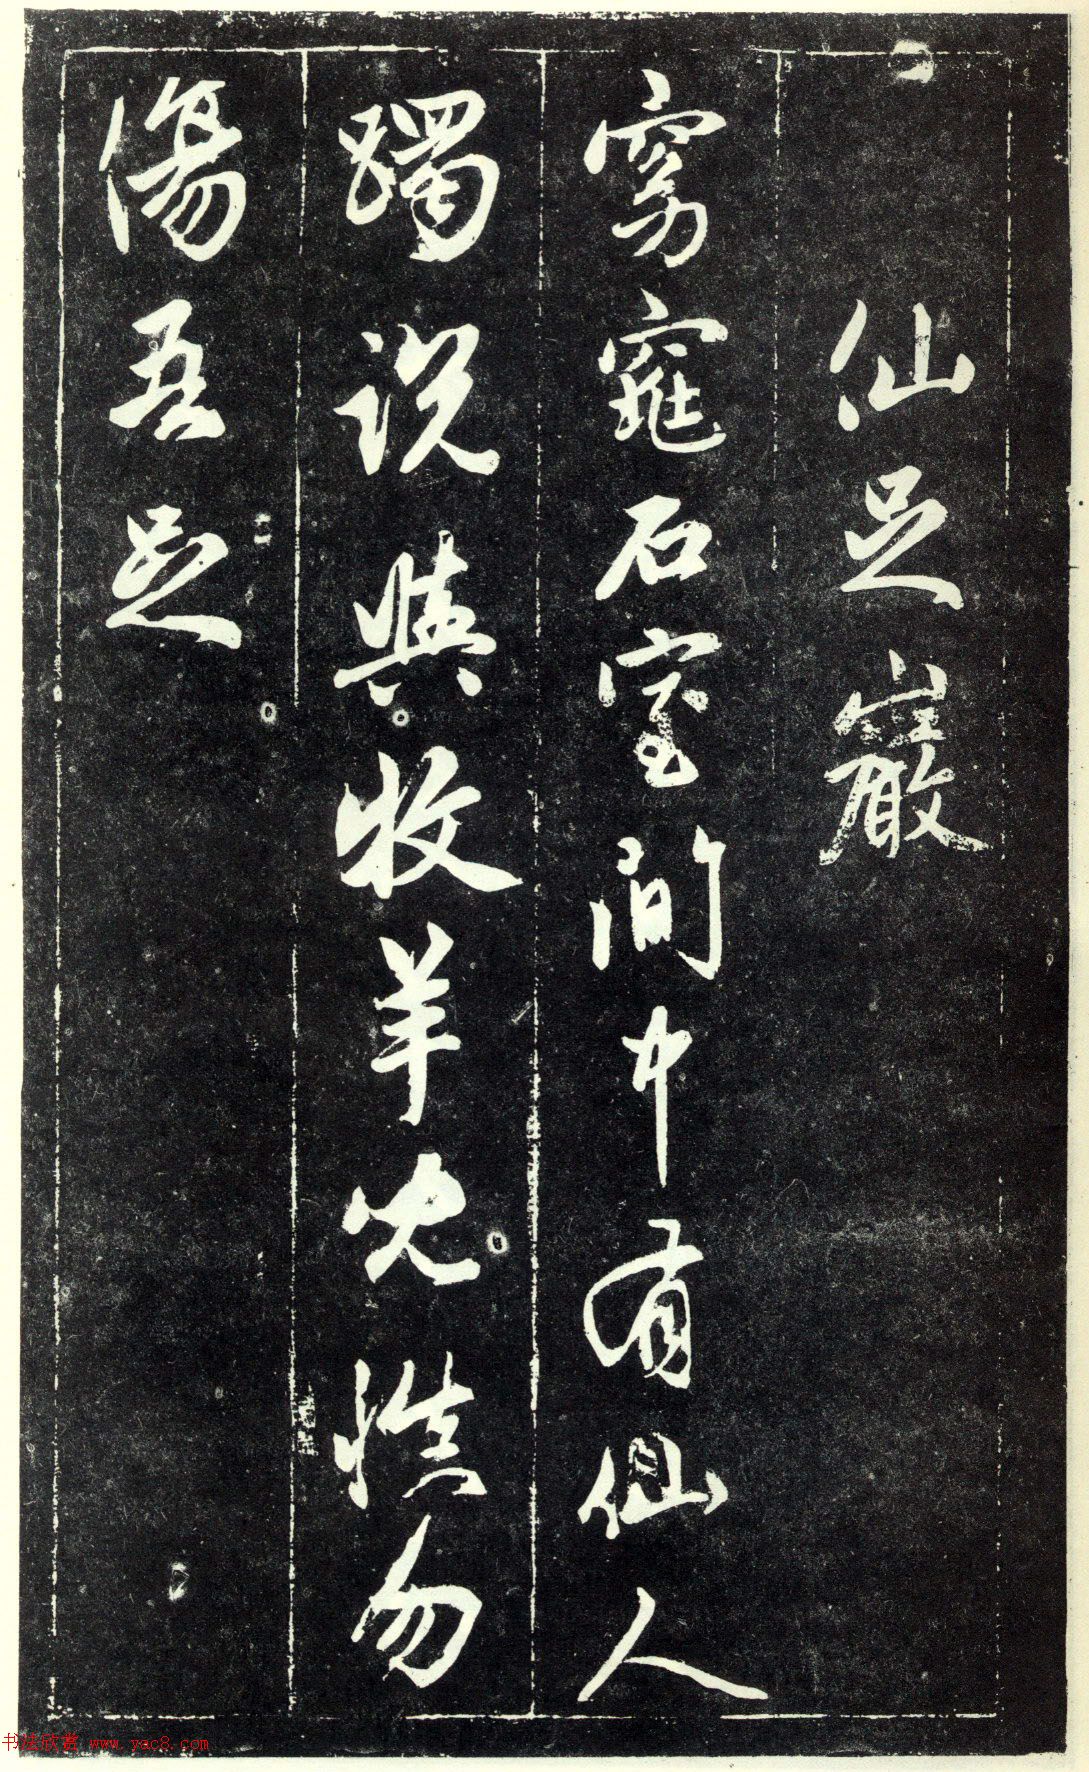 仙足巖
窈窕石室間中有仙人
躅說與牧羊兒慎勿
傷吾足
书法欣赏 www.yac8.com